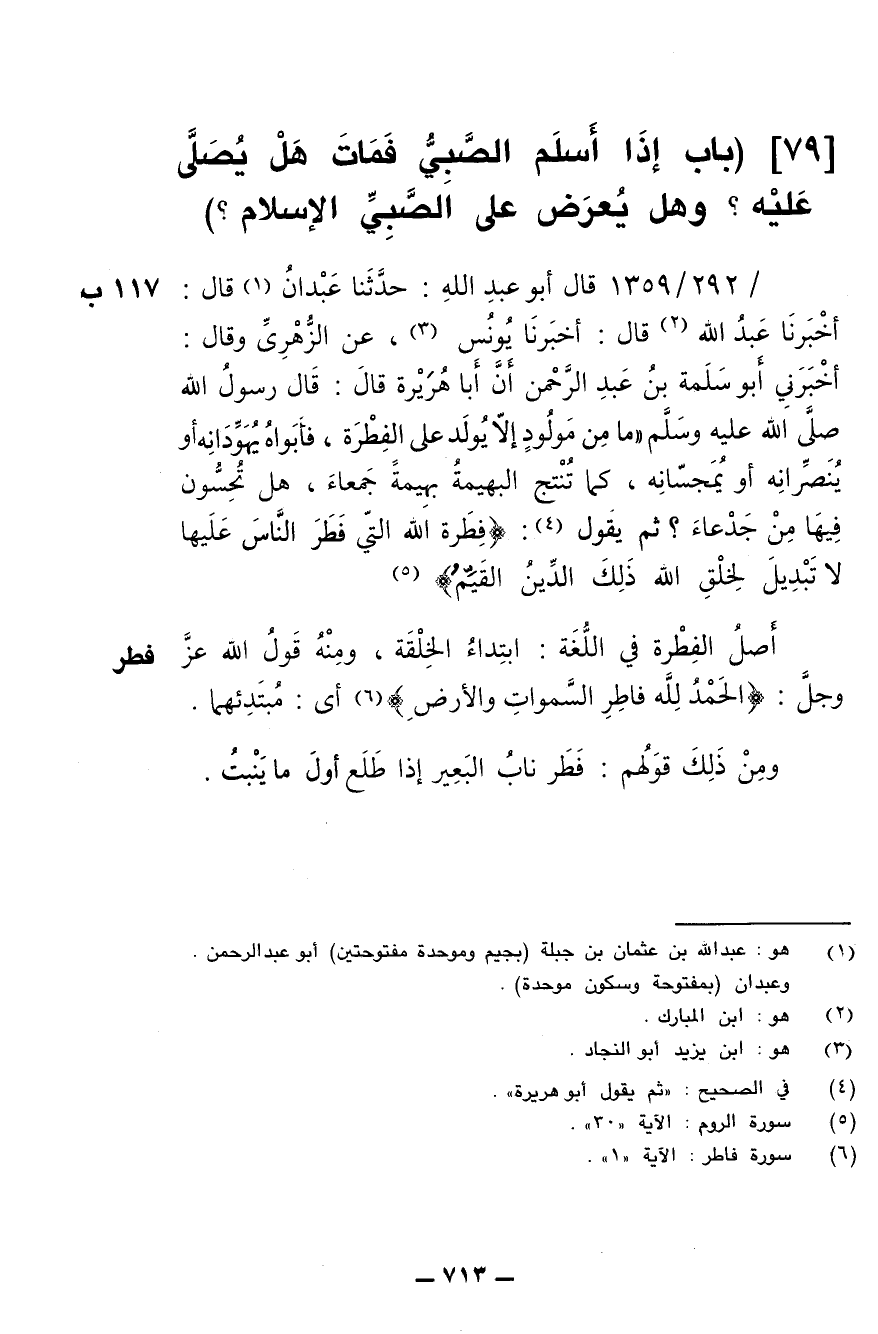 [٧٩] (باب إذَا أَسلَم الصَّبِيُّ فَمَاتَ هَلْ يُصَلَّى
عَلَيْه ؟ وهل يُعرَض على الصَّبِيِّ الإسلام ؟)
/ ١٣٥٩/٢٩٢ قال أبو عبدِ اللهِ : حدَّثَنا عَبْدانُ (١) قال : ١١٧ ب
أخْبَرنَا عَبدُ الله (٢) قال : أخبَرنَا يُونُس (٣) ، عن الزُّهْرِىِّ وقال :
أخْبَرَنِي أَبو سَلَمة بنُ عَبدِ الرَّحْمن أَنَّ أَبا هُرَيْرة قالَ : قَال رسولُ الله
صلَّى الله عليه وسَلَّم «ما مِن مَولُودٍ إلاّ يُولَد على الفِطْرَة ، فأبَواهُ يُهَوِّدَانِه أو
يُنَصِّرانِه أو يُمَجسّانِه ، كما تُنْتج البهيمةُ بهيمةً جَمعاءَ ، هل تُحِسُّون
فِيهَا مِنْ جَدْعاءَ ؟ ثم يقول (٤) : ﴿فِطَرة الله التيّ فَطَرَ النَّاسَ عَلَيها
لا تَبْدِيلَ لِخلْقِ الله ذَلِكَ الدِّينُ القَيِّمُ﴾ (٥)
أَصلُ الفِطْرة في اللُّغَة : ابتِداءُ الخِلْقَة ، ومِنْهُ قَولُ الله عزَّ فطر
وجلَّ : ﴿الحَمْدُ لِلَّه فاطِرِ السَّمواتِ والأرضِ﴾ (٦) أى : مُبتَدِئهما .
ومِنْ ذَلِكَ قوَلُهم : فَطَر نابُ البَعِير إذا طَلَع أولَ ما يَنْبتُ .
(١) هو : عبدالله بن عثمان بن جبلة (بجيم وموحدة مفتوحتين) أبو عبدالرحمن .
وعبدان (بمفتوحة وسكون موحدة) .
(٢) هو : ابن المبارك .
(٣) هو : ابن يزيد أبو النجاد .
(٤) في الصحيح : «ثم يقول أبو هريرة» .
(٥) سورة الروم : الآية «٣٠» .
(٦) سورة فاطر : الآية «١» .
– ٧١٣ –